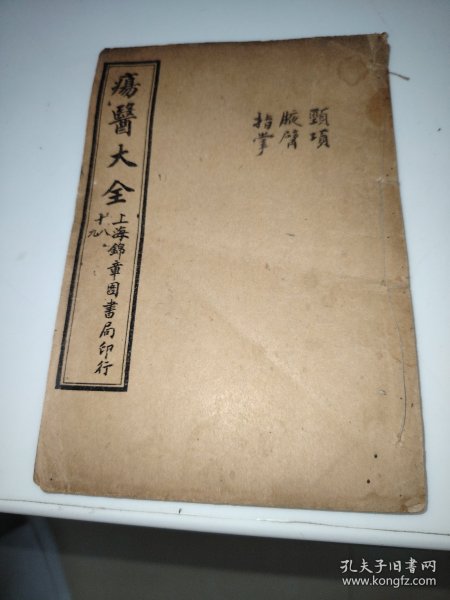 頸項
腋臂
指掌
瘍醫大全
十八
十九
上海錦章圖書局印行
孔夫子旧书网
www.kongfz.com